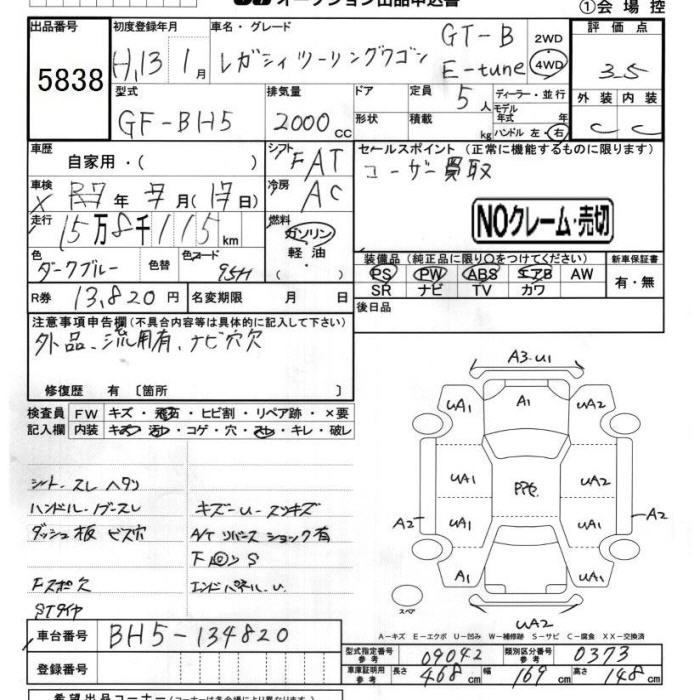 オークション出品申込書
①会場控
出品番号 初度登録年月 車名・グレード GT-B 2WD 評価点
5838 H,13 1月 レガシィツーリングワゴン E-tune 4WD 3.5
型式 排気量 ドア 定員 5人 ディーラー・並行 外装 内装
モデル年式 年式
GF-BH5 2000cc 形状 積載 kg ハンドル 左・右 C C
車歴 自家用・( ) シフト FAT セールスポイント (正常に機能するものに限ります)
ユーザー買取
車検 × R7年 7月(17日) 冷房 AC
NOクレーム・売切
走行 15万8千115km 燃料 ガソリン
軽油
( )
色 ダークブルー 色替 色コード 95H
装備品 (純正品に限り○をつけてください) 新車保証書
PS PW ABS エアB AW 有・無
SR ナビ TV カワ
R券 13,820円 名変期限 月 日 後日品
注意事項申告欄(不具合内容等は具体的に記入して下さい)
外品、流用有、ナビ穴欠
修復歴 有 〔箇所 〕
検査員 FW キズ・飛石・ヒビ割・リペア跡・×要
記入欄 内装 キズ・汚・コゲ・穴・スレ・キレ・破レ
A3.U1
UA1 A1 UA2
UA1 UA2
PPG.
A2 UA1 UA1 A2
A1 UA1
スペア
UA2
シート・スレ ヘタリ
ハンドル・ノブ・スレ キズ-U-スリキズ
ダッシュ板 ビス穴 A/T リバース ショック有
下回りS
Fスポ欠 エンドパネル.U.
STタイヤ
A-キズ E-エクボ U-凹み W-補修跡 S-サビ C-腐食 XX-交換済
車台番号 BH5-134820
型式指定番号 参考 09042 類別区分番号 参考 0373
登録番号 車庫証明用 参考 長さ 468cm 幅 169cm 高さ 148cm
希望出品コーナー(コーナーは各会場により異なります)